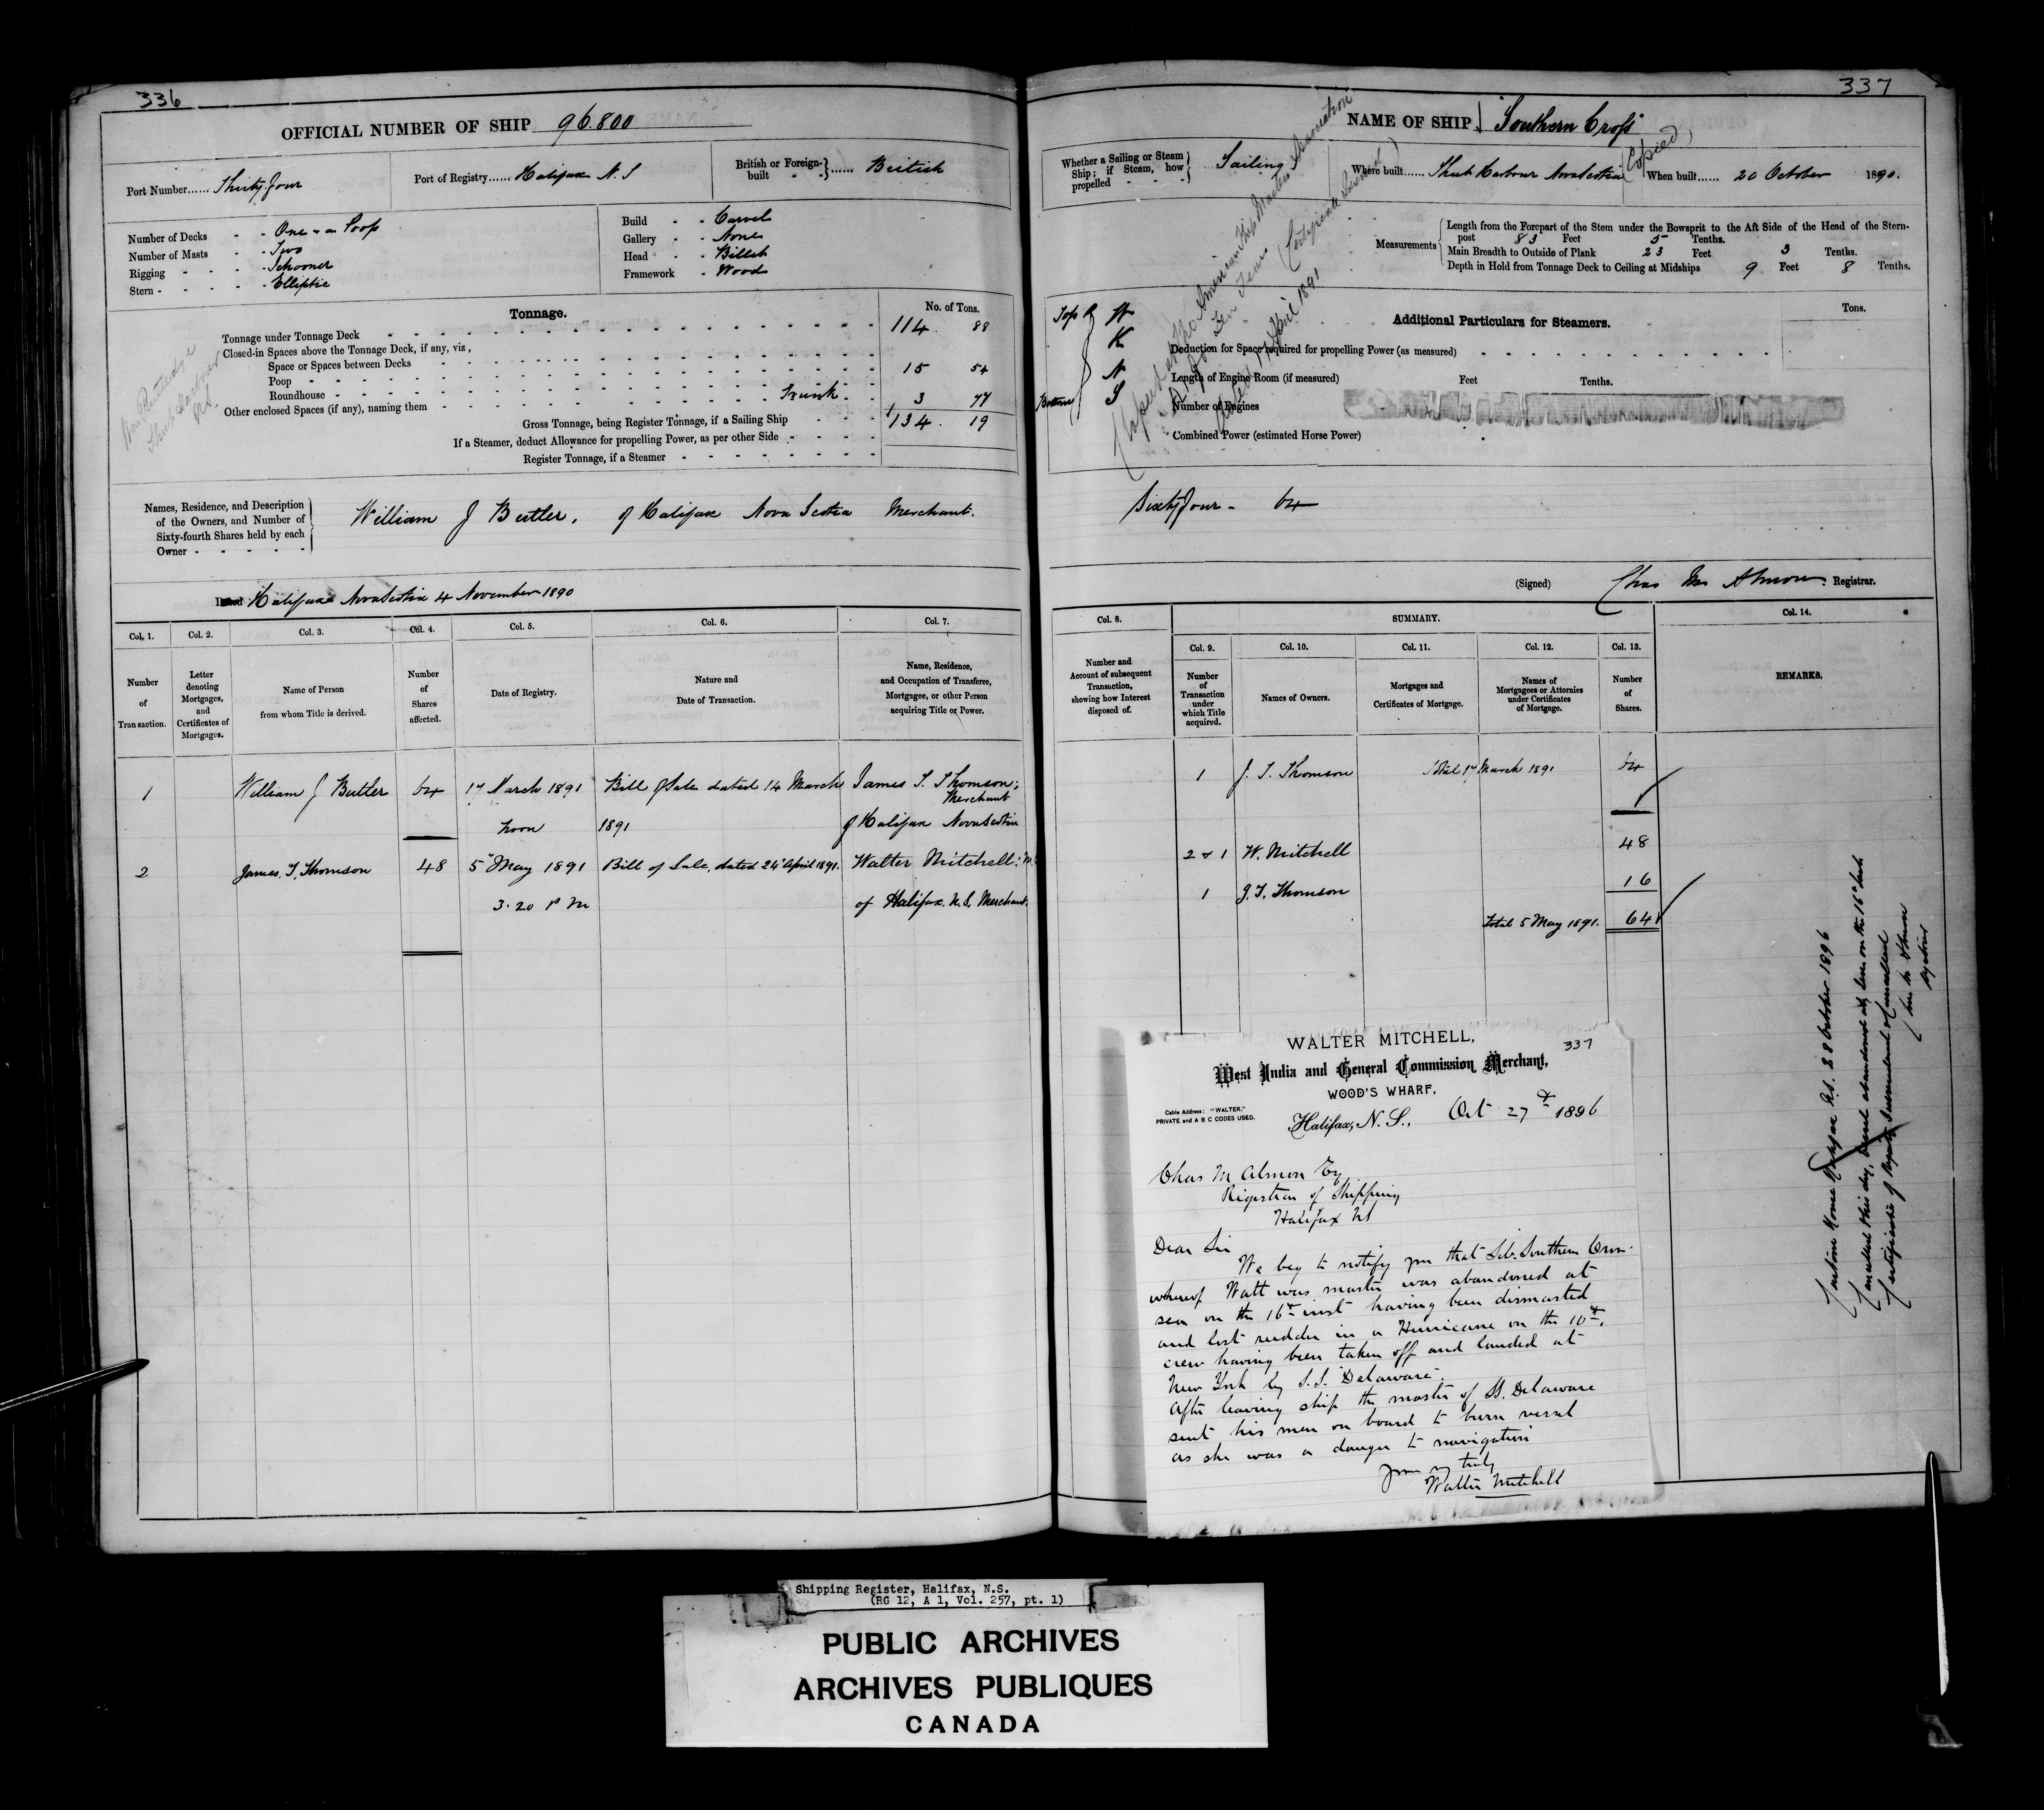 336
OFFICIAL NUMBER OF SHIP 96.800
Port Number...... Thirty four
Port of Registry...... Halifax N. S
British or Foreign-built ...... British
Number of Decks - - One & a Poop
Number of Masts - - Two
Rigging - - - - Schooner
Stern - - - - - Elliptic
Build - - Carvel
Gallery - - None
Head - - Billet
Framework - Wood
Tonnage.
No. of Tons.
Tonnage under Tonnage Deck 114. 88
Closed-in Spaces above the Tonnage Deck, if any, viz.,
Space or Spaces between Decks
Poop 15 54
Roundhouse
Other enclosed Spaces (if any), naming them Trunk 3 77
Gross Tonnage, being Register Tonnage, if a Sailing Ship 134. 19
If a Steamer, deduct Allowance for propelling Power, as per other Side
Register Tonnage, if a Steamer
Names, Residence, and Description
of the Owners, and Number of
Sixty-fourth Shares held by each
Owner
William J Butler, of Halifax Nova Scotia Merchant.
Dated Halifax Nova Scotia 4 November 1890
Col. 1. Col. 2. Col. 3. Col. 4. Col. 5. Col. 6. Col. 7.
Number of Transaction.
Letter denoting Mortgages, and Certificates of Mortgages.
Name of Person from whom Title is derived.
Number of Shares affected.
Date of Registry.
Nature and Date of Transaction.
Name, Residence, and Occupation of Transferee, Mortgagee, or other Person acquiring Title or Power.
1 William J Butler 64 17 March 1891 Bill of Sale dated 14 March James T. Thomson; Merchant
noon 1891 of Halifax Nova Scotia
2 James. T. Thomson 48 5" May 1891 Bill of Sale, dated 24 April 1891. Walter Mitchell:
3.20 P M of Halifax. N. S. Merchant.
337
NAME OF SHIP "Southern Cross"
(Copied)
Whether a Sailing or Steam Ship; if Steam, how propelled - - - Sailing
Where built...... Sheet Harbour Nova Scotia
When built...... 20 October 1890.
Measurements
Length from the Forepart of the Stem under the Bowsprit to the Aft Side of the Head of the Stern-
post 83 Feet 5 Tenths.
Main Breadth to Outside of Plank 23 Feet 3 Tenths.
Depth in Hold from Tonnage Deck to Ceiling at Midships 9 Feet 8 Tenths.
Additional Particulars for Steamers.
Tons.
Deduction for Space required for propelling Power (as measured)
Length of Engine Room (if measured) Feet Tenths.
Number of Engines
Combined Power (estimated Horse Power)
Sixty four - 64
(Signed) Chas M Almon Registrar.
Col. 8. SUMMARY. Col. 14.
Col. 9. Col. 10. Col. 11. Col. 12. Col. 13.
Number and Account of subsequent Transaction, showing how Interest disposed of.
Number of Transaction under which Title acquired.
Names of Owners.
Mortgages and Certificates of Mortgage.
Names of Mortgagees or Attornies under Certificates of Mortgage.
Number of Shares.
REMARKS.
1 J. T. Thomson Total 17 March 1891 64
2 & 1 W. Mitchell 48
1 J. T. Thomson 16
Total 5 May 1891. 64
Custom House Halifax N.S. 28 October 1896
Cancelled this day, Vessel abandoned at sea on the 16" inst
Certificate of Registry surrendered & cancelled
Chas M Almon
Registrar
337
WALTER MITCHELL,
West India and General Commission Merchant,
WOOD'S WHARF,
Cable Address: "WALTER."
PRIVATE and A B C CODES USED.
Halifax, N. S., Oct 27th 1896
Chas M Almon Esq
Registrar of Shipping
Halifax NS
Dear Sir
We beg to notify you that Sch. Southern Cross
whereof Watt was master was abandoned at
sea on the 16th inst having been dismasted
and lost rudder in a Hurricane on the 10th,
crew having been taken off and landed at
New York by S.S. Delaware.
After leaving ship the master of SS. Delaware
sent his men on board to burn vessel
as she was a danger to navigation
Yours truly
Walter Mitchell
Shipping Register, Halifax, N.S.
(RG 12, A 1, Vol. 257, pt. 1)
PUBLIC ARCHIVES
ARCHIVES PUBLIQUES
CANADA